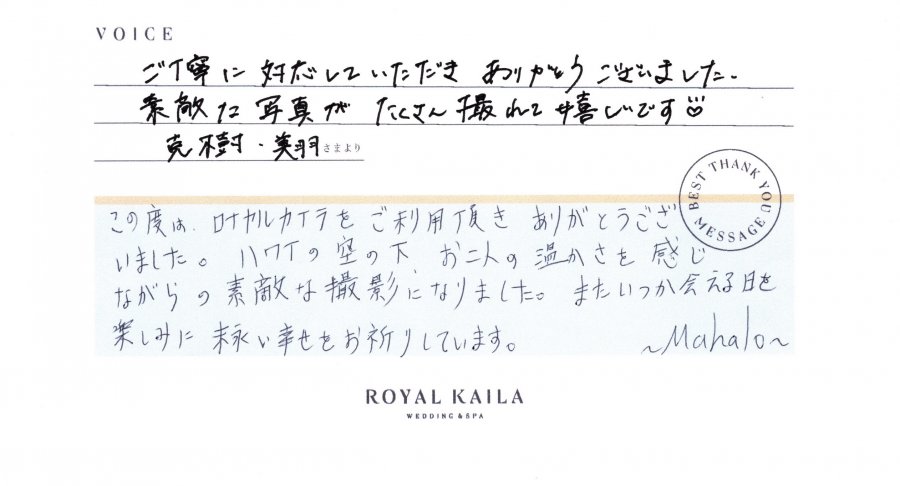 VOICE
ご丁寧に対応していただき ありがとうございました。
素敵な写真が たくさん撮れて嬉しいです
克樹・美羽さまより
BEST THANK YOU MESSAGE
この度は、ロイヤルカイラをご利用頂き ありがとうござ
いました。ハワイの空の下 お二人の温かさを感じ
ながらの素敵な撮影になりました。またいつか会える日を
楽しみに 末永い幸せをお祈りしています。 ~Mahalo~
ROYAL KAILA
WEDDING & SPA